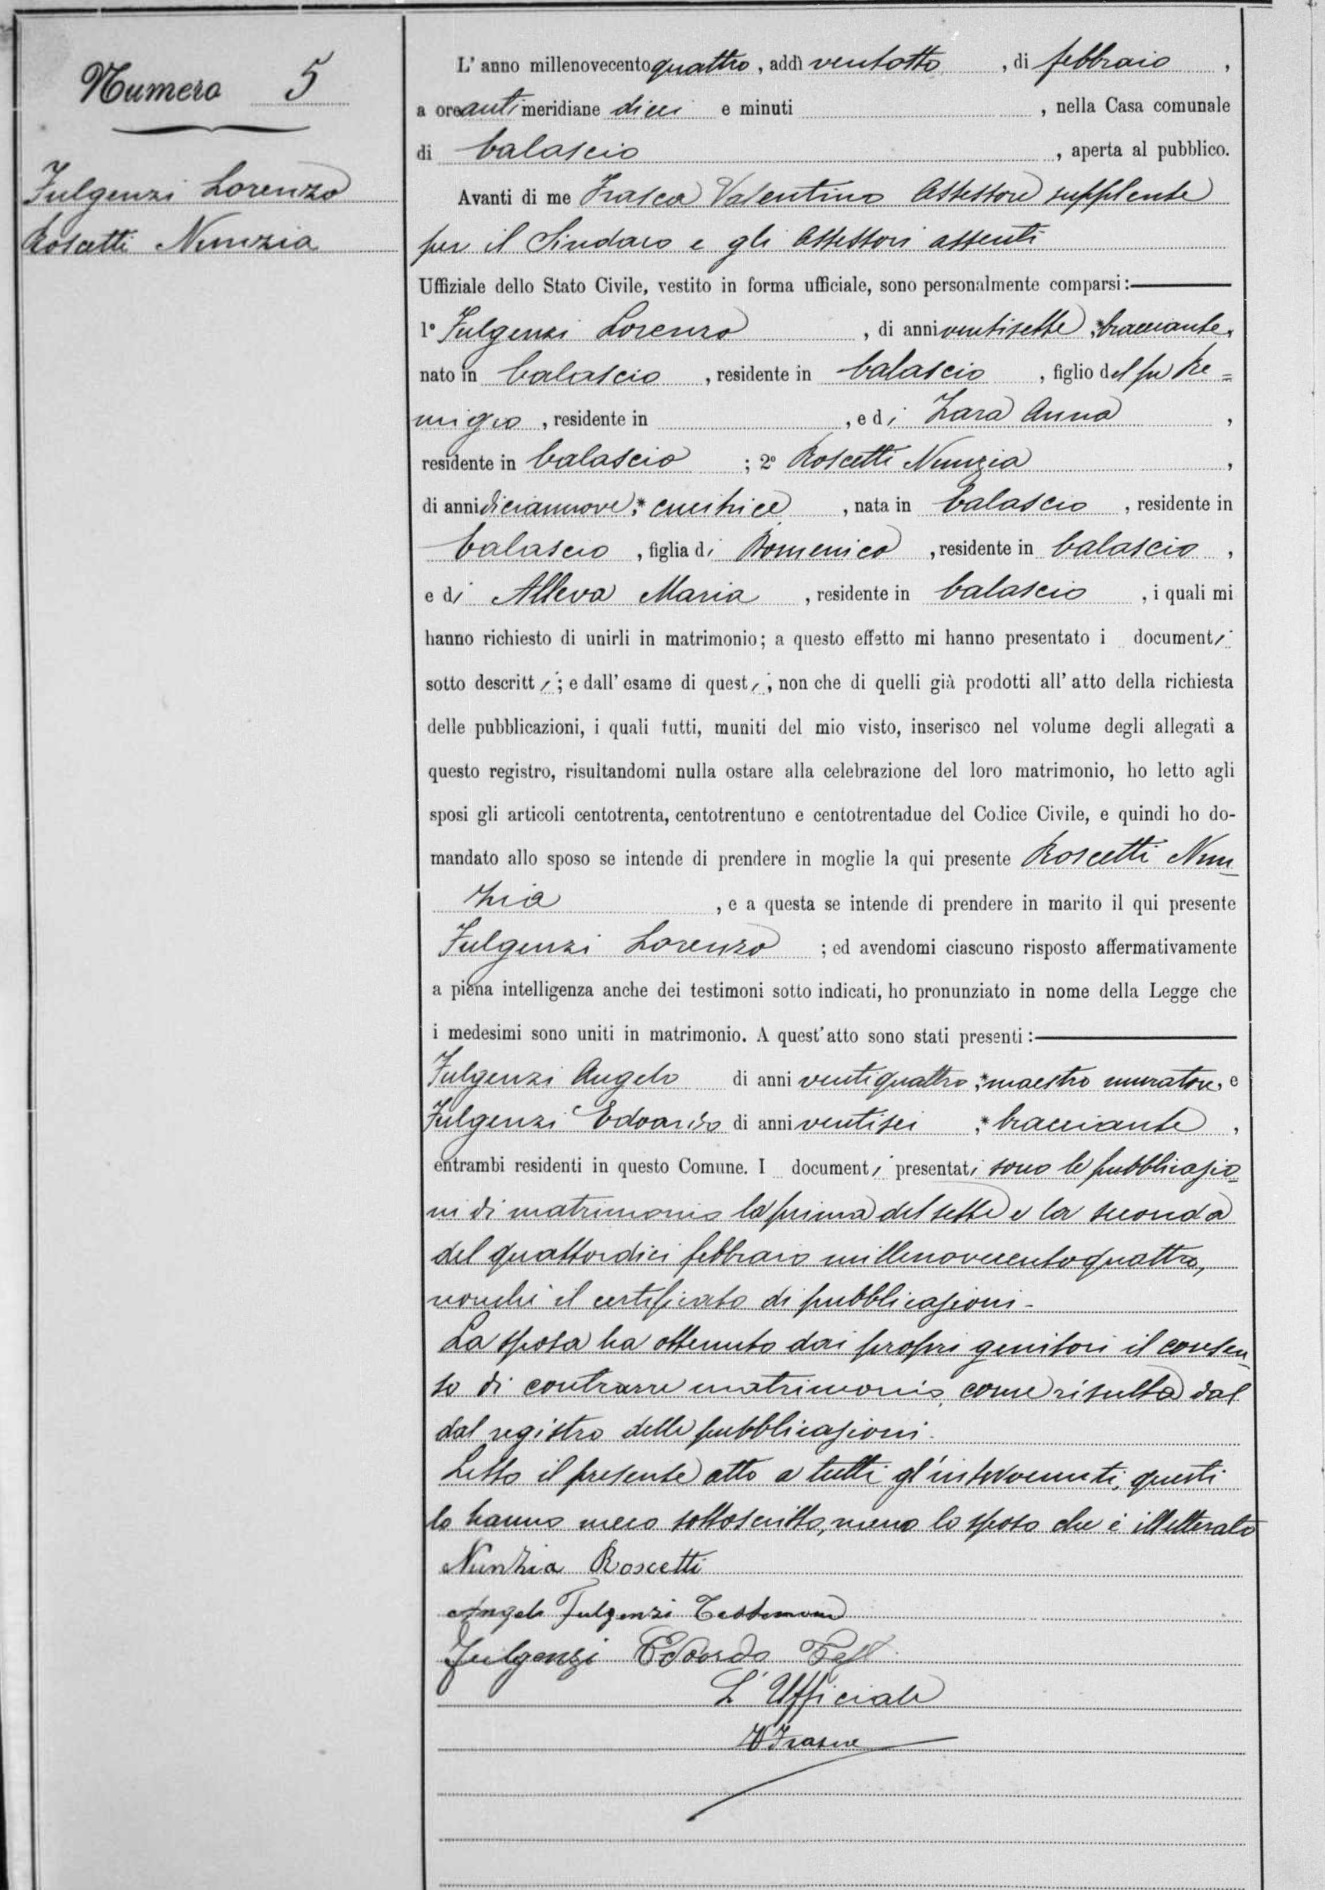 Numero 5
Fulgenzi Lorenzo
Roscetti Nunzia
L' anno millenovecentoquattro, addì ventotto, di febbraio,
a ore antimeridiane dieci e minuti , nella Casa comunale
di Calascio , aperta al pubblico.
Avanti di me Frasca Valentino Assessore supplente
per il Sindaco e gli Assessori assenti
Uffiziale dello Stato Civile, vestito in forma ufficiale, sono personalmente comparsi:
1° Fulgenzi Lorenzo , di anni ventisette, bracciante,
nato in Calascio , residente in Calascio , figlio del fu Re=
migio , residente in , e di Zara Anna ,
residente in Calascio ; 2° Roscetti Nunzia ,
di anni diciannove, * cucitrice , nata in Calascio , residente in
Calascio , figlia di Domenico , residente in Calascio ,
e di Alleva Maria , residente in Calascio , i quali mi
hanno richiesto di unirli in matrimonio; a questo effetto mi hanno presentato i documenti
sotto descritti; e dall' esame di questi, non che di quelli già prodotti all' atto della richiesta
delle pubblicazioni, i quali tutti, muniti del mio visto, inserisco nel volume degli allegati a
questo registro, risultandomi nulla ostare alla celebrazione del loro matrimonio, ho letto agli
sposi gli articoli centotrenta, centotrentuno e centotrentadue del Codice Civile, e quindi ho do-
mandato allo sposo se intende di prendere in moglie la qui presente Roscetti Nun
zia , e a questa se intende di prendere in marito il qui presente
Fulgenzi Lorenzo ; ed avendomi ciascuno risposto affermativamente
a piena intelligenza anche dei testimoni sotto indicati, ho pronunziato in nome della Legge che
i medesimi sono uniti in matrimonio. A quest'atto sono stati presenti:
Fulgenzi Angelo di anni ventiquattro, * maestro muratore, e
Fulgenzi Edoardo di anni ventisei , * bracciante ,
entrambi residenti in questo Comune. I documenti presentati sono le pubblicazio
ni di matrimonio la prima del sette e la seconda
del quattordici febbraio millenovecentoquattro,
nonché il certificato di pubblicazioni.
La sposa ha ottenuto dai propri genitori il consen
so di contrarre matrimonio, come risulta dal
dal registro delle pubblicazioni.
Letto il presente atto a tutti gl'intervenuti, questi
lo hanno meco sottoscritto, meno lo sposo che è illetterato
Nunzia Roscetti
Angelo Fulgenzi Testimone
Fulgenzi Edoardo Test.
L'Ufficiale
V Frasca